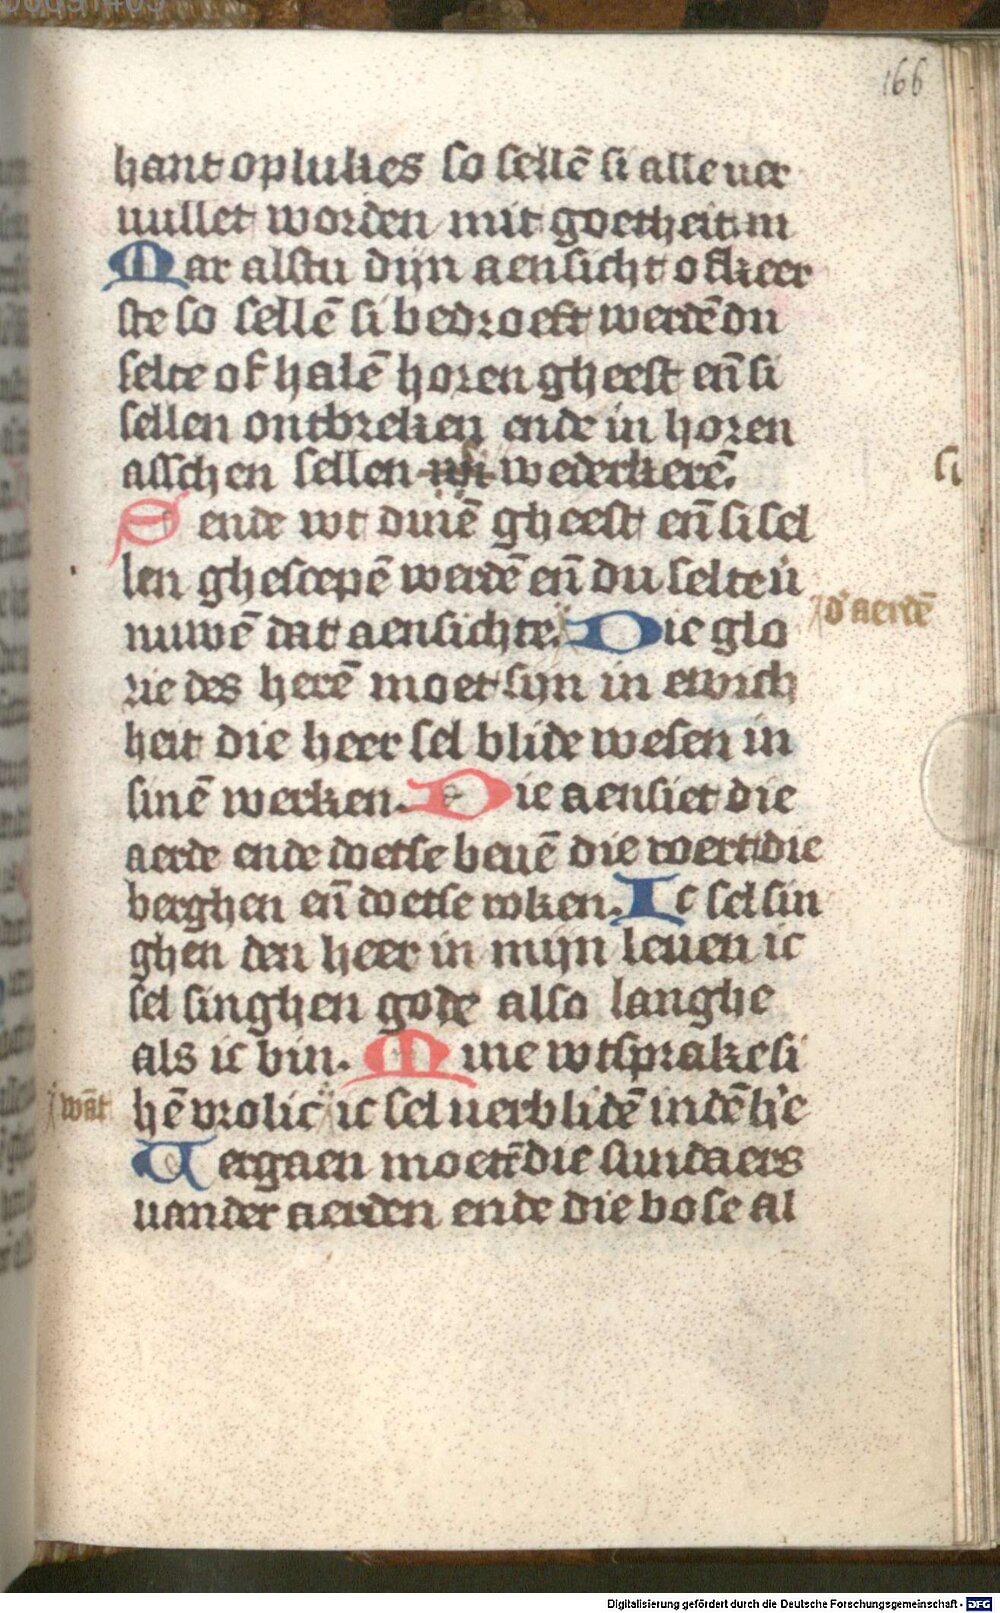 166
hant oplukes so sellē si alle ver
uullet worden mit goetheit m
Mar alstu dijn aensicht ofkeer
ste so sellē si bedroeft werdē du
selte of halē horen gheest eñ si
sellen ontbreken ende in horen
asschen sellen wederkerē.
si
Sende wt dinē gheest eñ si sel
len ghescepē werdē eñ du selte ū
nuwē dat aensichte. Die glo
d' aerdē
rie des herē moet sijn in ewich
heit die heer sel blide wesen in
sinē werken. Die aensiet die
aerde ende doetse beuē die roert die
berghen eñ doetse roken. Ic sel sin
ghen den heer in mijn leuen ic
sel singhen gode also langhe
als ic bin. Mine wtsprake si
wāt
hē vrolic ic sel uerblidē in dē h'e
Uergaen moetē die sundaers
uander aerden ende die bose al
Digitalisierung gefördert durch die Deutsche Forschungsgemeinschaft - DFG